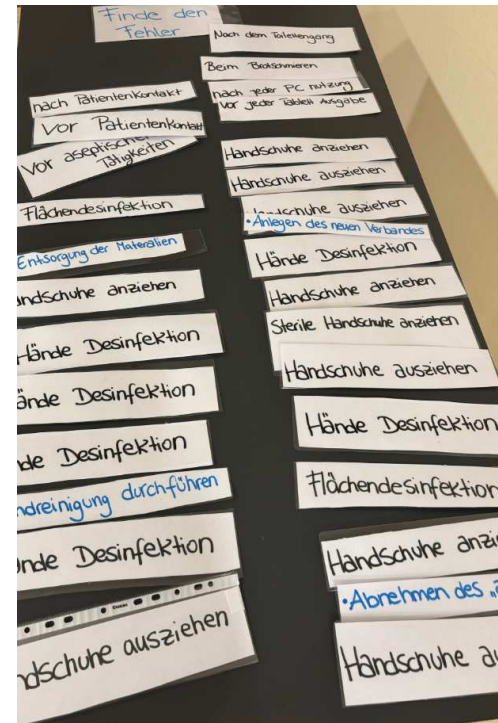 Finde den
Fehler
nach Patientenkontakt
Vor Patientenkontakt
Vor aseptischen
Tätigkeiten
Flächendesinfektion
Entsorgung der Materialien
ndschuhe anziehen
Hände Desinfektion
ände Desinfektion
de Desinfektion
ndreinigung durchführen
nde Desinfektion
ndschuhe ausziehen
Nach dem Toilettengang
Beim Brotschmieren
nach jeder PC nutzung
Vor jeder Tablett Ausgabe
Handschuhe anziehen
Handschuhe ausziehen
Handschuhe ausziehen
• Anlegen des neuen Verbandes
Hände Desinfektion
Handschuhe anziehen
Sterile Handschuhe anziehen
Handschuhe ausziehen
Hände Desinfektion
Flächendesinfektion
Handschuhe anzie
• Abnehmen des „
Handschuhe au